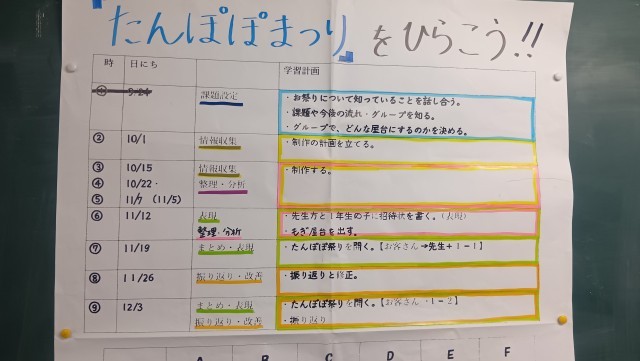 「たんぽぽまつり」をひらこう!!
時 日にち 学習計画
① 9/24 課題設定 ・お祭りについて知っていることを話し合う。
・課題や今後の流れ・グループを知る。
・グループで、どんな屋台にするのかを決める。
② 10/1 情報収集 ・制作の計画を立てる。
③ 10/15 情報収集 ・制作する。
④ 10/22・ 整理・分析
⑤ 11/7 (11/5)
⑥ 11/12 表現 ・先生方と1年生の子に招待状を書く。(表現)
整理・分析 ・もぎ屋台を出す。
⑦ 11/19 まとめ・表現 ・たんぽぽ祭りを開く。【お客さん→先生+1-1】
⑧ 11/26 振り返り・改善 ・振り返りと修正。
⑨ 12/3 まとめ・表現 ・たんぽぽ祭りを開く。【お客さん・1-2】
振り返り・改善 ・振り返り
A B C D E F